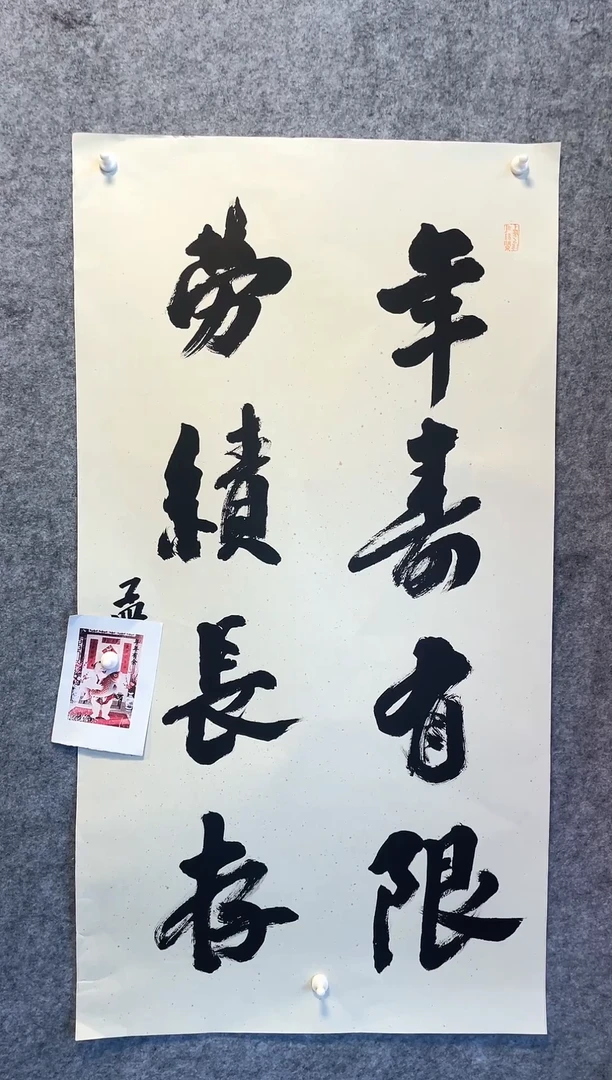 年壽有限
勞績長存
孟